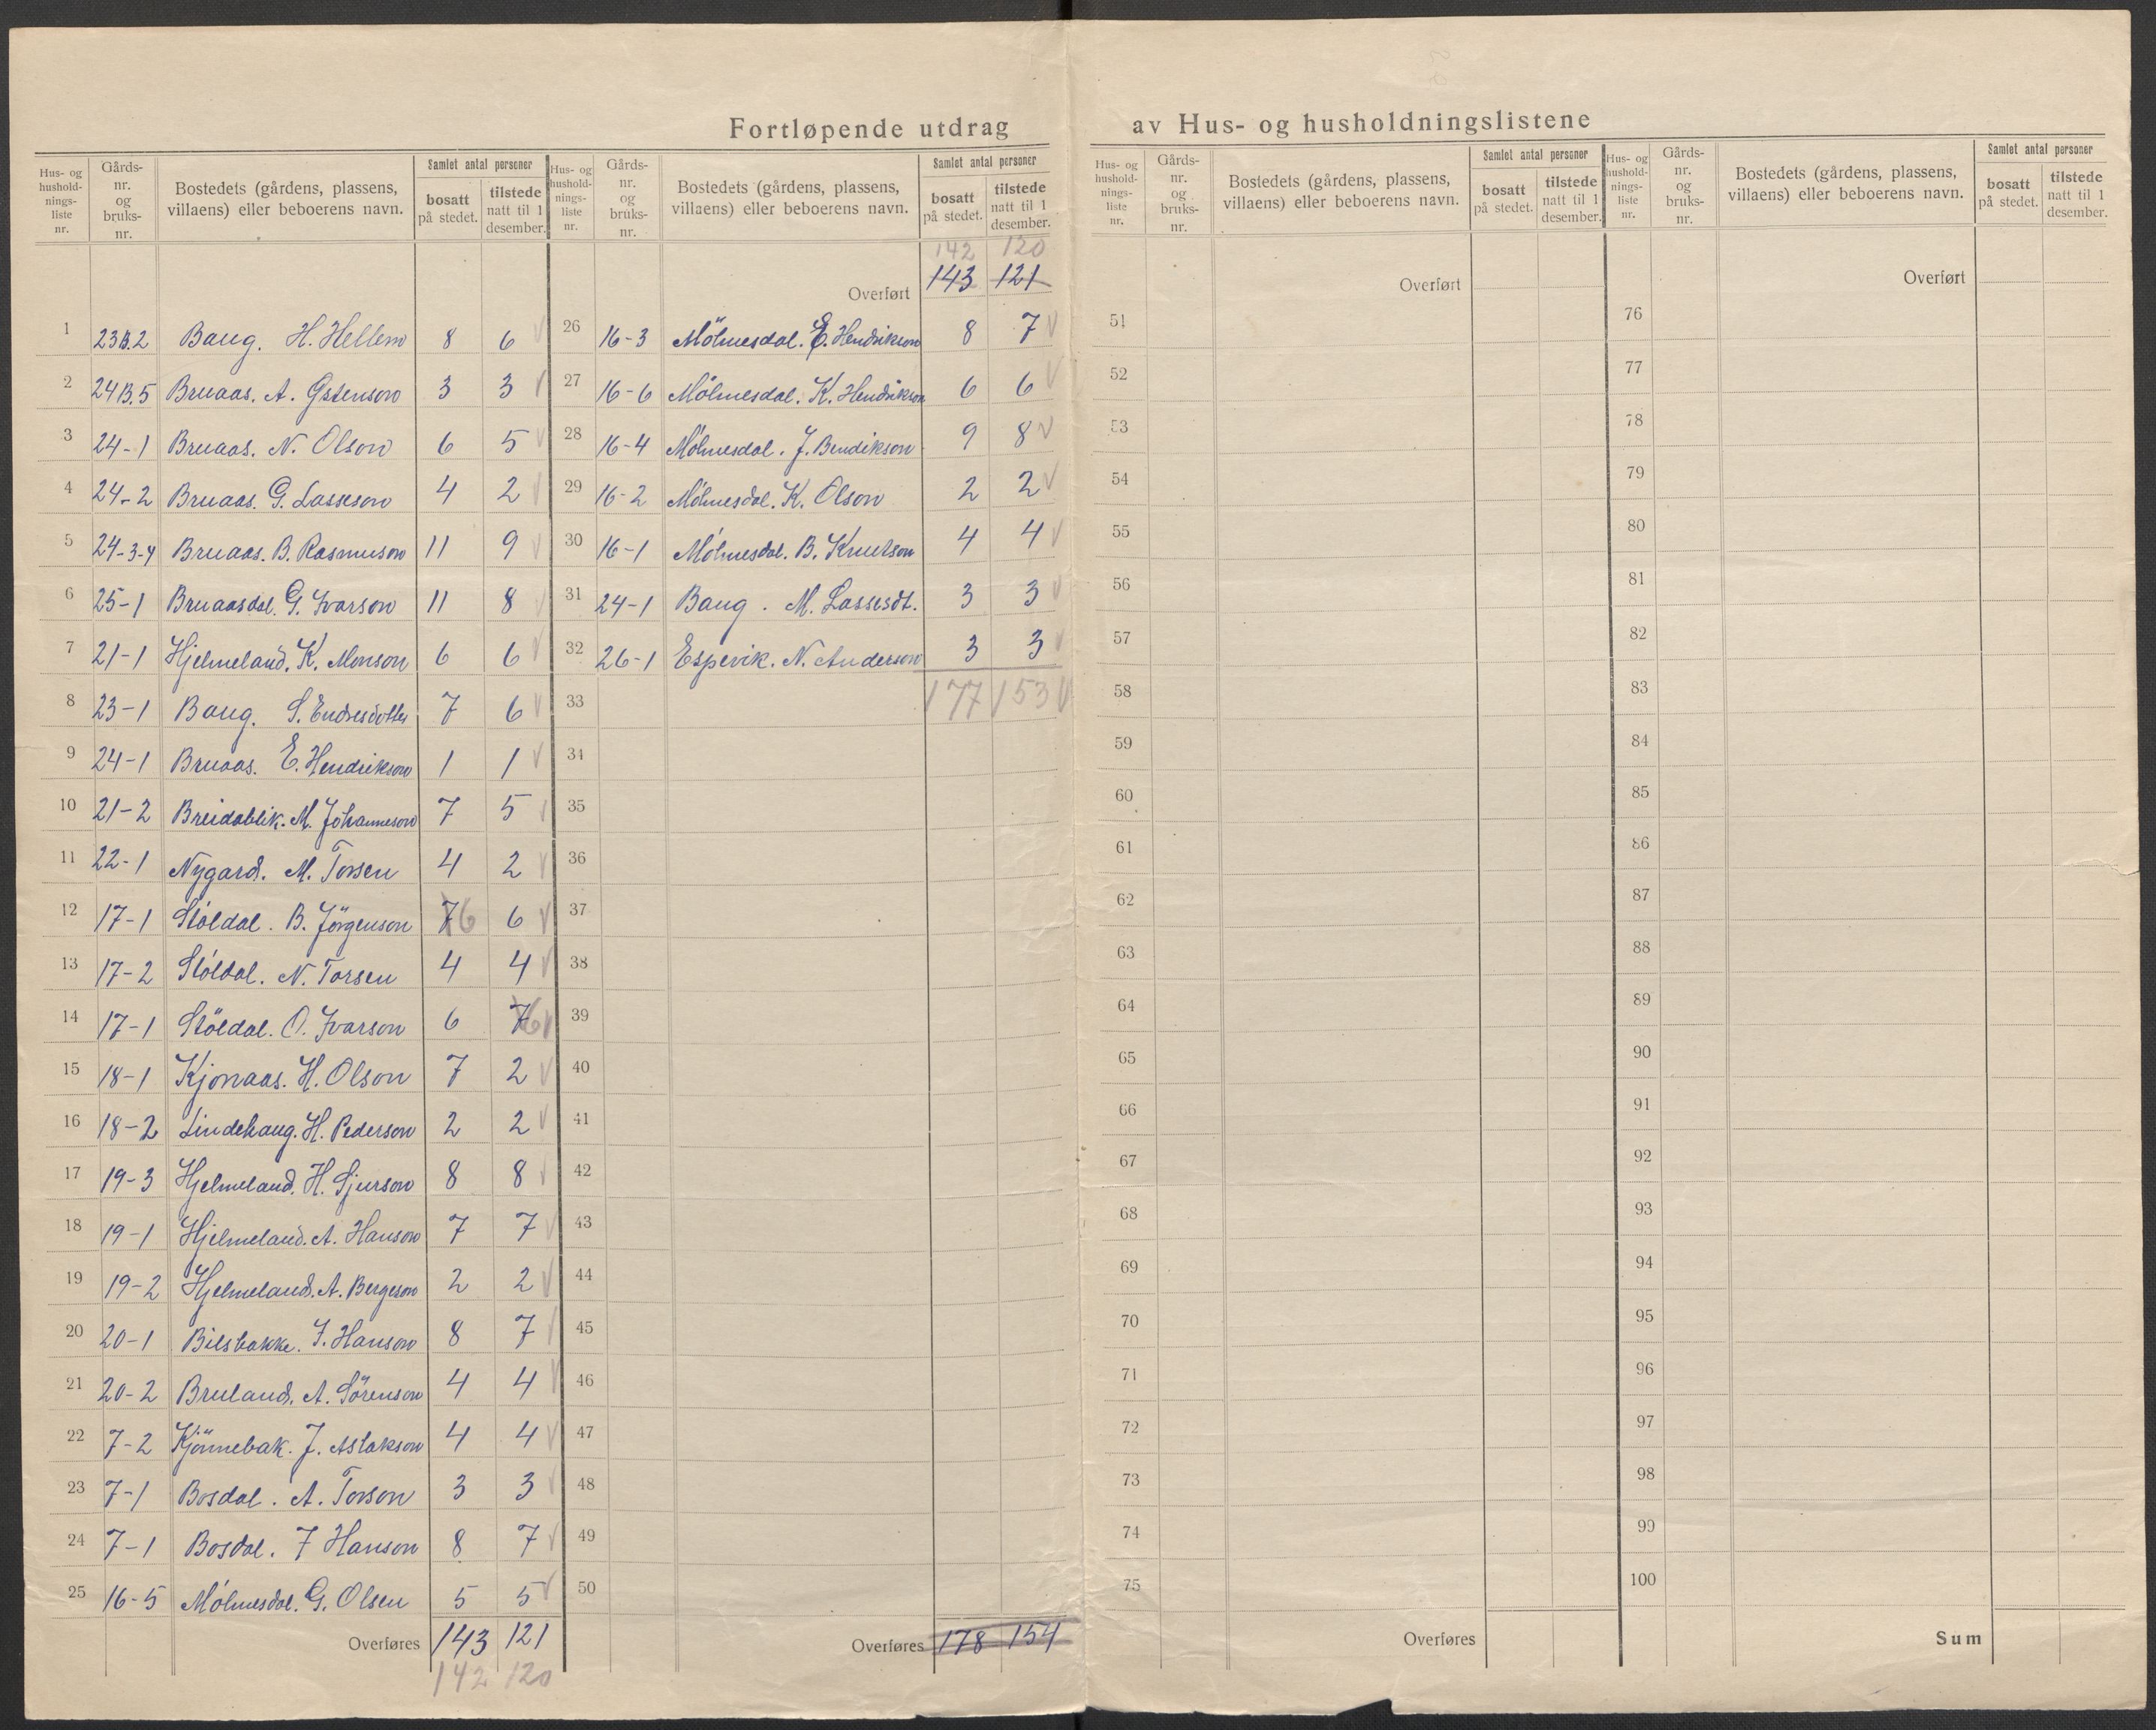 Fortløpende utdrag av Hus- og husholdningslistene
Hus- og hushold- nings- liste nr. | Gårds- nr. og bruks- nr. | Bostedets (gårdens, plassens, villaens) eller beboerens navn. | Samlet antal personer | bosatt på stedet. | tilstede natt til 1 desember.
1 23B.2 Baug. H. Hellem 8 6
2 24B.5 Bruaas. A. Gstenson 3 3
3 24-1 Bruaas. N. Olson 6 5
4 24-2 Bruaas. G. Lasseson 4 2
5 24-3-4 Bruaas. B. Rasmuson 11 9
6 25-1 Bruaasdal. G. Ivarson 11 8
7 21-1 Hjelmeland. K. Monson 6 6
8 23-1 Baug. S. Endresdotter 7 6
9 24-1 Bruaas. E. Hendrikson 1 1
10 21-2 Breidablik. M. Johanneson 7 5
11 22-1 Nygard. M. Torsen 4 2
12 17-1 Stöldal. B. Jörgenson 7 6 6
13 17-2 Stöldal. N. Torsen 4 4
14 17-1 Stöldal. O. Ivarson 6 7 6
15 18-1 Kjonaas. H. Olson 7 2
16 18-2 Lindehaug. H. Pederson 2 2
17 19-3 Hjelmeland. H. Sjurson 8 8
18 19-1 Hjelmeland. A. Hanson 7 7
19 19-2 Hjelmeland. A. Bergeson 2 2
20 20-1 Bilsbakke. I. Hanson 8 7
21 20-2 Bruland. A. Sörenson 4 4
22 7-2 Kjönnebak. J. Aslakson 4 4
23 7-1 Bosdal. A. Torson 3 3
24 7-1 Bosdal. F Hanson 8 7
25 16-5 Mölmesdal. G. Olsen 5 5
Overføres 143 121
142 120
Hus- og hushold- nings- liste nr. | Gårds- nr. og bruks- nr. | Bostedets (gårdens, plassens, villaens) eller beboerens navn. | Samlet antal personer | bosatt på stedet. | tilstede natt til 1 desember.
142 120
Overført 143 121
26 16-3 Mölmesdal. E. Hendrikson 8 7
27 16-6 Mölmesdal. K. Hendrikson 6 6
28 16-4 Mölmesdal. J. Bendikson 9 8
29 16-2 Mölmesdal. K. Olson 2 2
30 16-1 Mölmesdal. B. Knutson 4 4
31 24-1 Baug. M. Lassesdt. 3 3
32 26-1 Espevik. N. Anderson 3 3
33 177 153
34
35
36
37
38
39
40
41
42
43
44
45
46
47
48
49
50
Overføres 178 154
Hus- og hushold- nings- liste nr. | Gårds- nr. og bruks- nr. | Bostedets (gårdens, plassens, villaens) eller beboerens navn. | Samlet antal personer | bosatt på stedet. | tilstede natt til 1 desember.
Overført
51
52
53
54
55
56
57
58
59
60
61
62
63
64
65
66
67
68
69
70
71
72
73
74
75
Overføres
Hus- og hushold- nings- liste nr. | Gårds- nr. og bruks- nr. | Bostedets (gårdens, plassens, villaens) eller beboerens navn. | Samlet antal personer | bosatt på stedet. | tilstede natt til 1 desember.
Overført
76
77
78
79
80
81
82
83
84
85
86
87
88
89
90
91
92
93
94
95
96
97
98
99
100
Sum